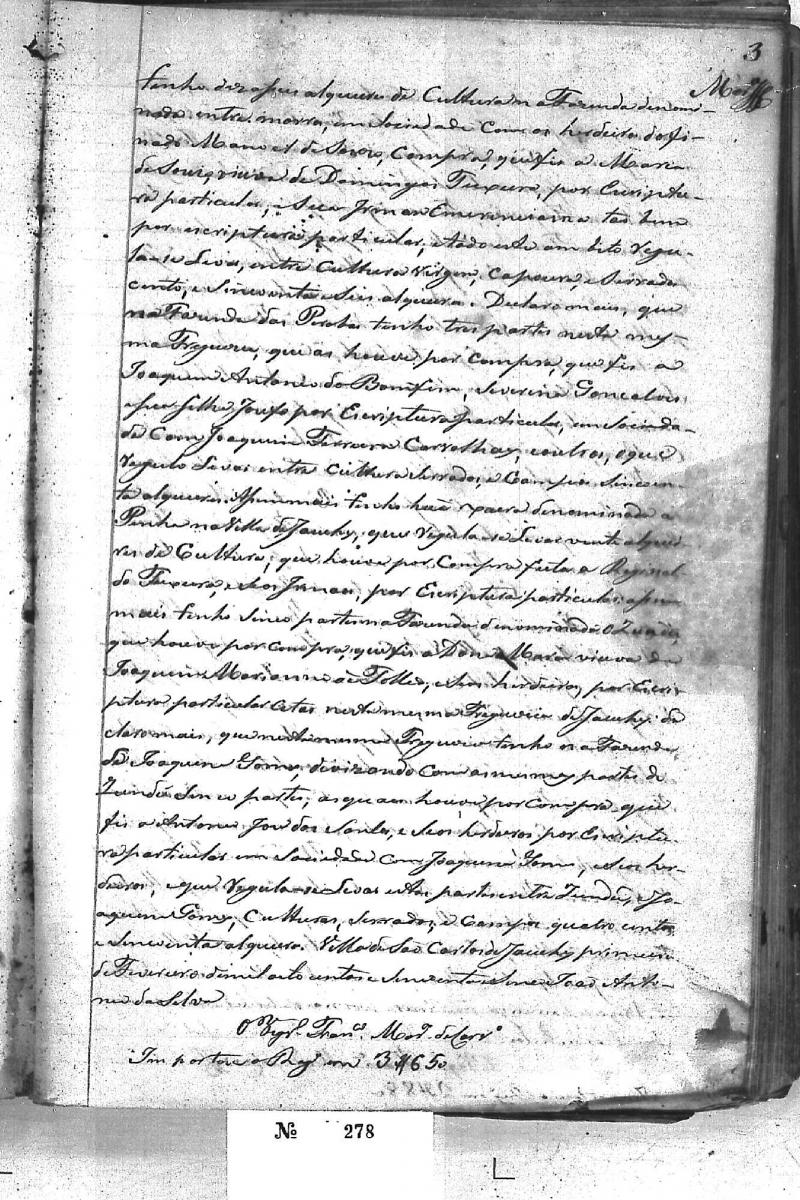 3
tenho dezasseis alqueires de Cultura na Fazenda denomi-
nada entre morro, em Sociedade Com os herdeiros do fi-
nado Manoel de Souza, Compra, que fis a Maria
de Souza, viuva de Domingos Teixeira, por Escriptu-
ra particular, e Seus Irmaos Emerenciana tao bem
por escriptura particular, e todo este ambito regu-
la-se levar, entre Cultura Virgem, Capoeira e Serrados
cento, e Sincoenta e Seis alqueires. Declaro mais, que
na Fazenda das Perobas tenho tres partes nesta mes-
ma Freguezia, que as houve por compra, que fis a
Joaquim Antonio do Bomfim, Severino Gonçalves
e seo filho José por Escriptura particular, em Socieda-
de Com Joaquim Ferreira Carvalhaes, e outros, e que
regula levar entre Cultura Serrados, e Campos Sincoen-
ta alqueires. Assim mais tenho huã xacra denominada a
Penha na Villa de Jacuhy, que regula-se levar vinte alquei-
res de Cultura, que houve por Compra feita a Reginal-
do Teixeira, e Seos Irmaos, por Escriptura particular: assim
mais tenho Sinco partes na Fazenda denominada o Zundú,
que houve por compra, que fis a Dona Maria viuva de
Joaquim Marianno de Tolledo, e Seus herdeiros, por Escri-
ptura particular estas nesta mesma Freguezia de Jacuhy: de-
claro mais, que nesta mesma Freguezia tenho na Fazenda
de Joaquim Gomes, divizando Com as mesmas partes do
Zundú Sinco partes, as quaes houve por compra que
fis a Antonio José dos Santos, e Seos herdeiros por Escriptu-
ra particular em Sociedade Com Joaquim Gomes, e Seus her-
deiros, e que regula-se levar estas partes entre Zundú, e Jo-
aquim Gomes, Culturas, Serrados, e Campos quatro centos
e Sincoenta alqueires. Villa de São Carlos de Jacuhy primeiro
de Fevereiro de mil oito centos e Sincoenta e Seis João Anto-
nio da Silva
O Vigr.º Fran.co Mor.ª de Carv.º
Importa o Reg.º em 3#650
Nº 278